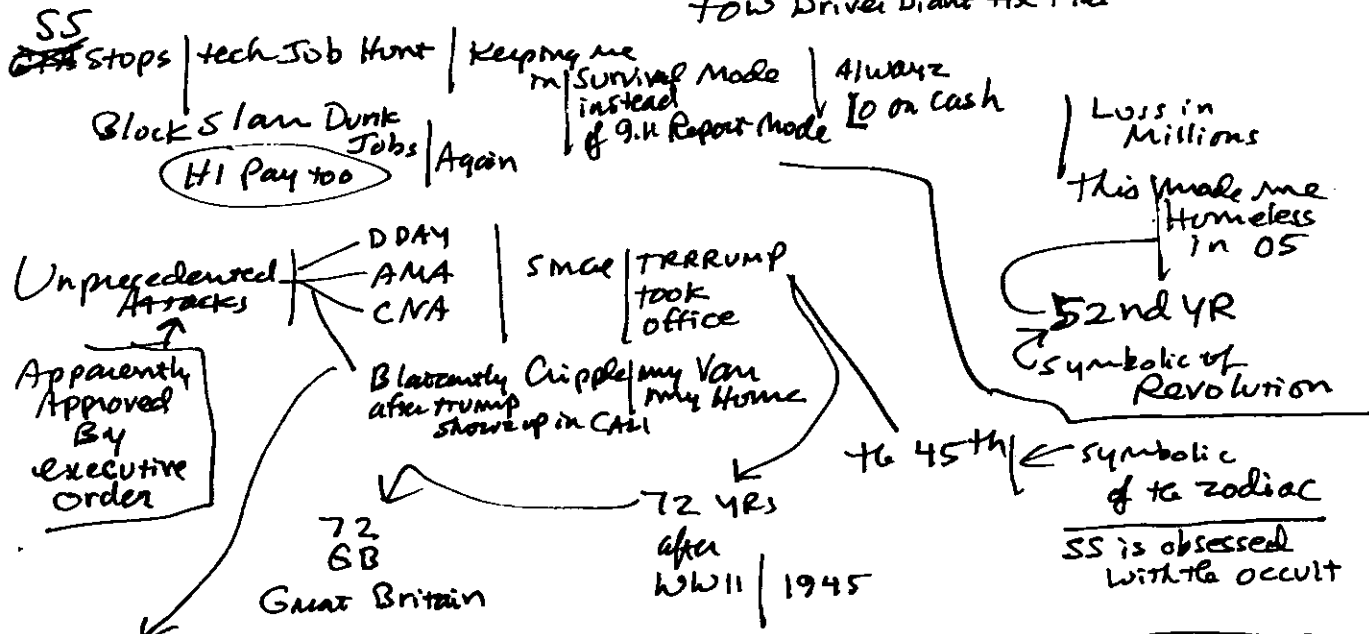 SS
Stops | tech Job Hunt | Keeping me
in | Survival Mode
instead
of 9.11 Report Mode
Always
Lo on Cash
Block Slam Dunk
Jobs | Again
HI Pay too
Loss in
Millions
This made me
Homeless
in 05
52nd YR
Symbolic of
Revolution
Unprecedented
Attacks
DDAY
AMA
CNA
Since | TRRRUMP
took
office
Apparently
Approved
By
executive
order
Blatently Cripple | my Van
after trump
my Home
showz up in CALI
the 45th
Symbolic
of the zodiac
SS is obsessed
with the occult
72 YRS
after
WWII | 1945
72
GB
Great Britain